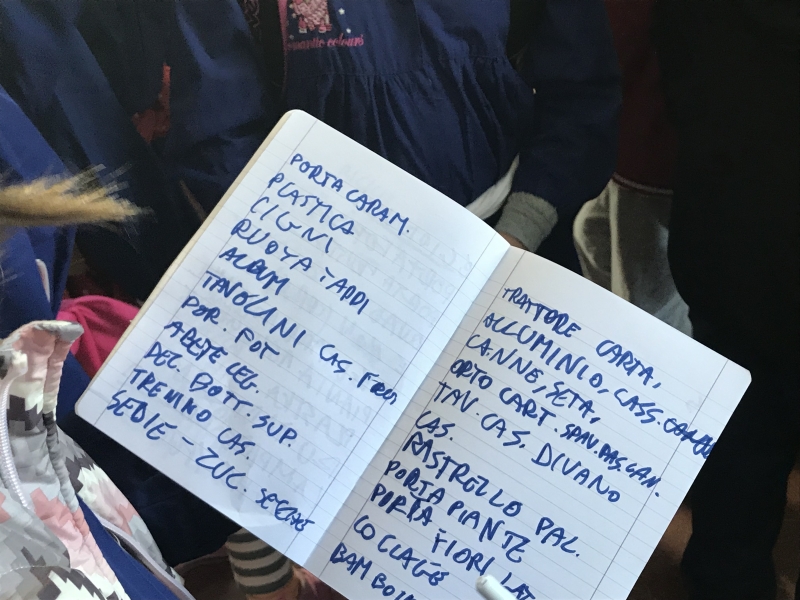 romantic colours
PORTA CARAM.
PLASTICA
CIGNI
RUOTA TAPPI
ALBUM
TAVOLINI CAS.
POR. FOT
ABETE LEG.
DEC. BOTT. SUP.
TRENINO CAS.
SEDIE - ZUC.
TRATTORE CARTA,
ALLUMINIO, CASS.
CANNE, SETA,
ORTO CART. SPAV. PAS. CAM.
TAV. CAS. DIVANO
CAS.
RASTRELLO PAL.
PORTA PIANTE
PORTA FIORI LAT
COLLAGE